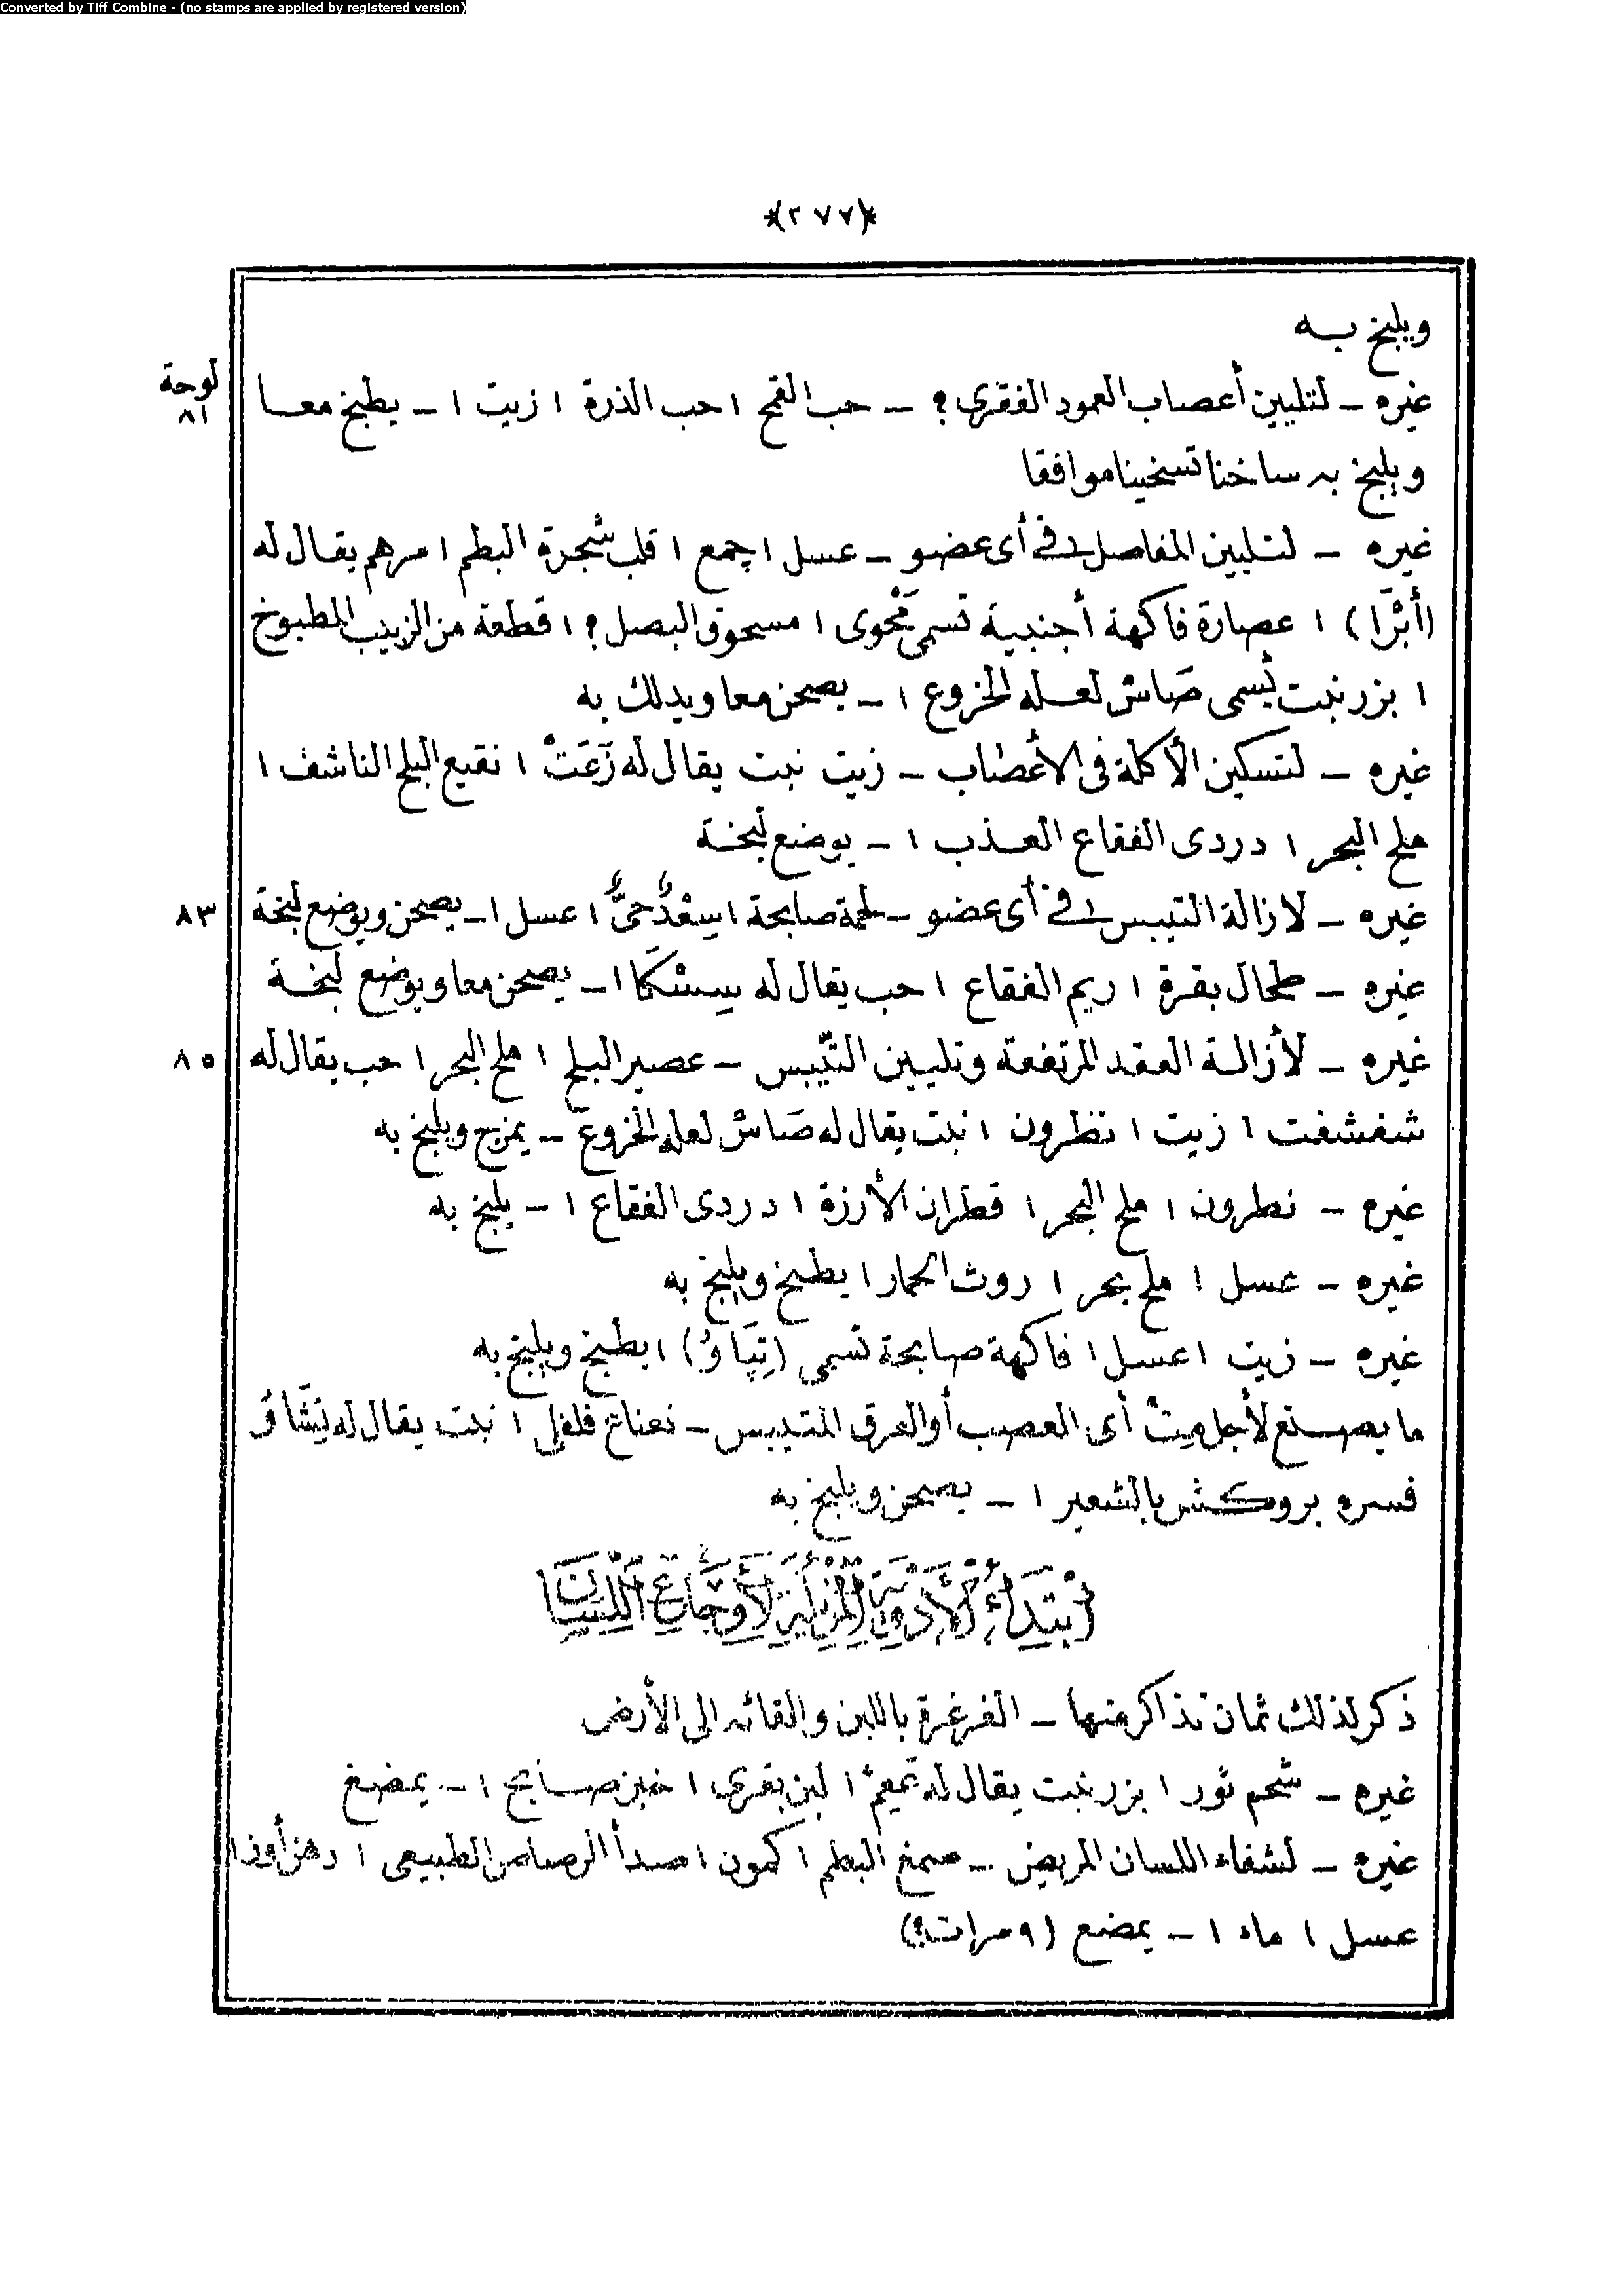 Converted by Tiff Combine - (no stamps are applied by registered version)
*(٢٧٧)*
ويلبخ به
غيره ــ لتليين أعصاب العمود الفقرى ? ــ حب القمح ١ حب الذرة ١ زيت ١ ــ يطبخ معا
لوحة ٨١
ويلبخ به ساخنا تسخينا موافقا
غيره ــ لتليين المفاصل فى أى عضو ــ عسل ١ جمع ١ قلب شجرة البطم ١ مرهم يقال له
(أبْرَّا) ١ عصارة فاكهة أجنبية تسمى مَحْوى ١ مسحوق البصل ? ١ قطعة من الزبيب المطبوخ
١ بزر نبت تسمى صَاسْ لعله الخروع ١ ــ يصحن معا ويدلك به
غيره ــ لتسكين الأكلة فى الأعصاب ــ زيت نبت يقال له زَعَتْ ١ نقيع البلح الناشف ١
ملح البحر ١ دردى الفقاع العذب ١ ــ يوضع لبخة
غيره ــ لازالة التيبس فى أى عضو ــ لحمة صابحة ١ ١ عسل ١ ــ يصحن ويوضع لبخة
٨٣
غيره ــ طحال بقرة ١ ريم الفقاع ١ حب يقال له سِسْكَا ١ ــ يصحن معا ويوضع لبخة
غيره ــ لأزالة العقد المرتفعة وتليين التيّبس ــ عصير البلح ١ ملح البحر ١ حب يقال له
٨٥
شفشفت ١ زيت ١ نظرون ١ نبت يقال له صَاسْ لعله الخروع ــ يمزج ويلبخ به
غيره ــ نطرون ١ ملح البحر ١ قطران الأرزة ١ دردى الفقاع ١ ــ يلبخ به
غيره ــ عسل ١ ملح بحر ١ روث الحمار ١ يطبخ ويلبخ به
غيره ــ زيت ١ عسل ١ فاكهة صابحة تسمى (تِپَاوُ) ١ يطبخ ويلبخ به
ما يصنع لأجل مِتْ أى العصب أو العرق المتيبس ــ نعناع فلفلى ١ نبت يقال له
فسره بروكش بالشعير ١ ــ يصحن ويلبخ به
اُبْتِدَاءُ الْأَدْوِيَةِ الْمُزِيلَةِ لِأَوْجَاعِ اللِّسَانِ
ذكر لذلك ثمان تذاكر منها ــ الغرغرة باللبن والقائه الى الأرض
غيره ــ شحم ثور ١ بزر نبت يقال له ١ لبن بقرى ١ خبز صابح ١ ــ يمضغ
غيره ــ لشفاء اللسان المريض ــ صمغ البطم ١ كمون ١ صدأ الرصاص الطبيعى ١ دهن أوز ١
عسل ١ ماء ١ ــ يمضع (٩ مرات ?)